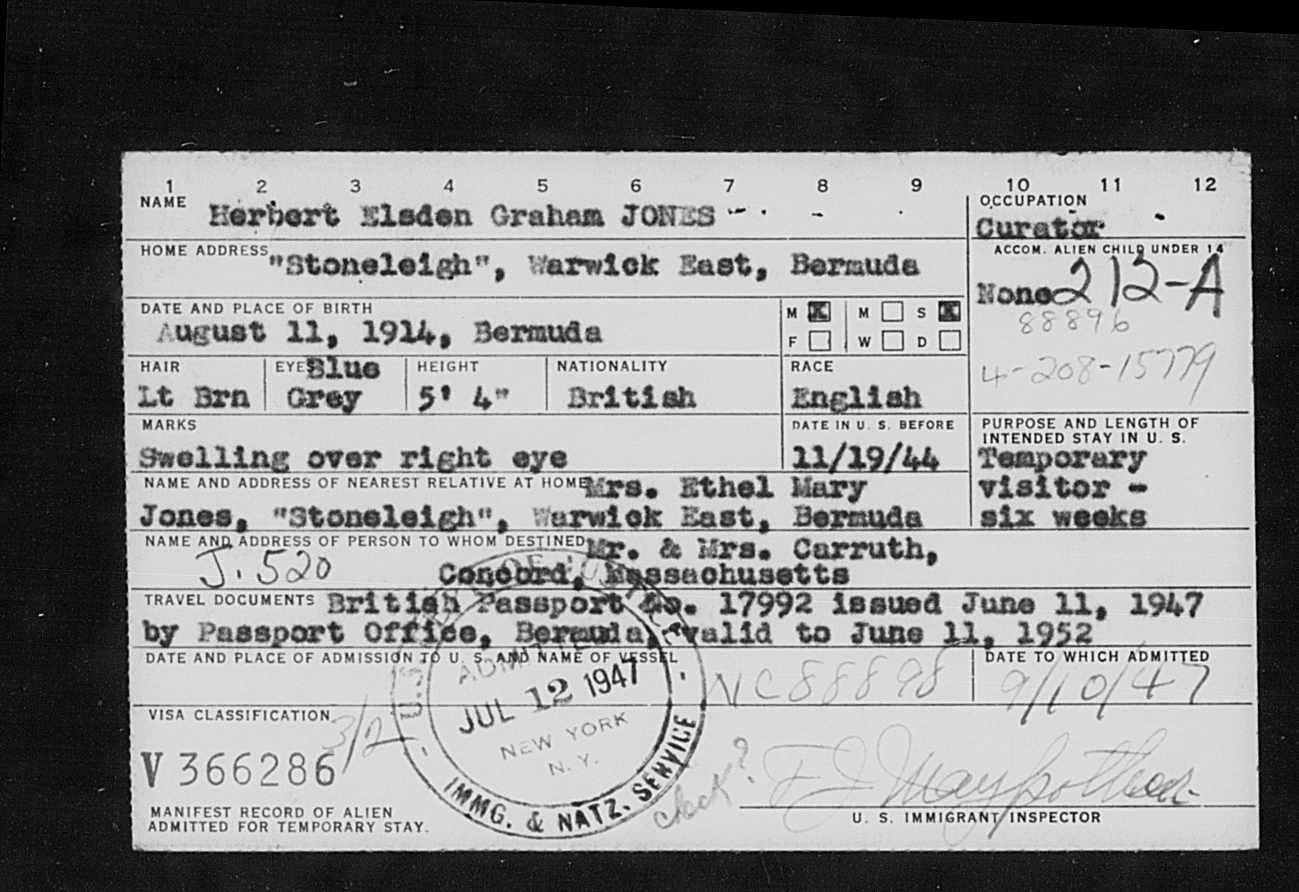 1 2 3 4 5 6 7 8 9 10 11 12
NAME Herbert Elsden Graham JONES
OCCUPATION
Curator
HOME ADDRESS "Stoneleigh", Warwick East, Bermuda
ACCOM. ALIEN CHILD UNDER 14
None 212-A
88896
4-208-15779
DATE AND PLACE OF BIRTH
August 11, 1914, Bermuda
M X M S X
F W D
HAIR EYES Blue HEIGHT NATIONALITY RACE
Lt Brn Grey 5' 4" British English
MARKS DATE IN U. S. BEFORE
Swelling over right eye 11/19/44
PURPOSE AND LENGTH OF
INTENDED STAY IN U. S.
Temporary
visitor -
six weeks
NAME AND ADDRESS OF NEAREST RELATIVE AT HOME Mrs. Ethel Mary
Jones, "Stoneleigh", Warwick East, Bermuda
NAME AND ADDRESS OF PERSON TO WHOM DESTINED Mr. & Mrs. Carruth,
J. 520 Concord, Massachusetts
TRAVEL DOCUMENTS British Passport No. 17992 issued June 11, 1947
by Passport Office, Bermuda, valid to June 11, 1952
DATE AND PLACE OF ADMISSION TO U. S. AND NAME OF VESSEL
NC88898
DATE TO WHICH ADMITTED
9/10/47
U.S.
ADMITTED
JUL 12 1947
NEW YORK
N. Y.
IMMG. & NATZ. SERVICE
VISA CLASSIFICATION 3/2
V 366286
check?
MANIFEST RECORD OF ALIEN
ADMITTED FOR TEMPORARY STAY.
U. S. IMMIGRANT INSPECTOR